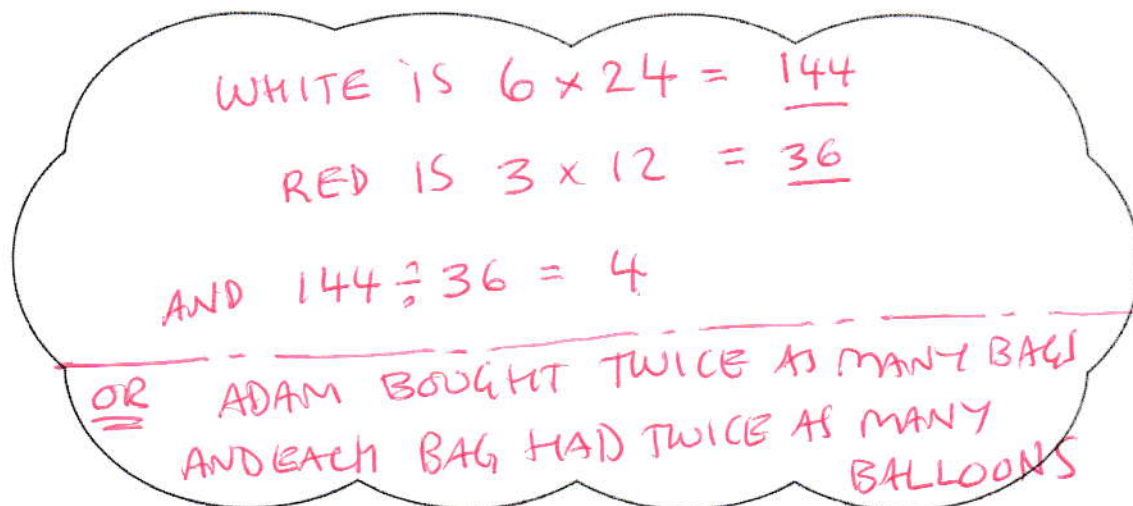 WHITE IS 6 × 24 = 144
RED IS 3 × 12 = 36
AND 144 ÷ 36 = 4
OR ADAM BOUGHT TWICE AS MANY BAGS
AND EACH BAG HAD TWICE AS MANY
BALLOONS